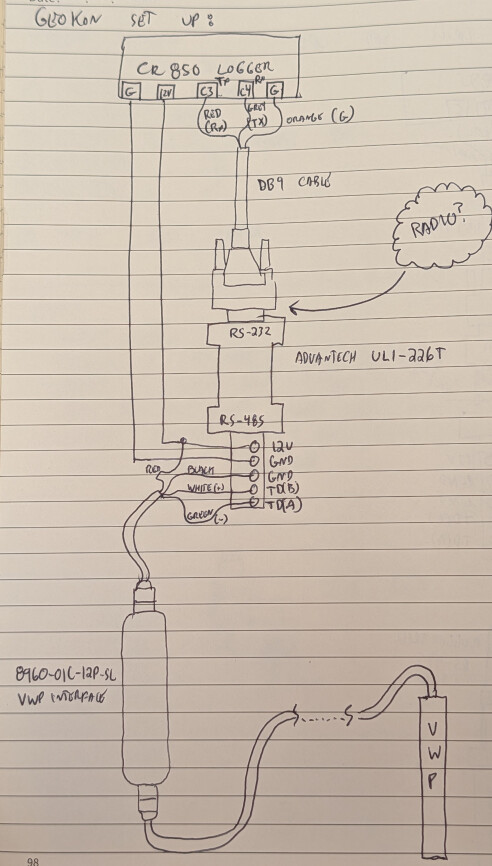 GEOKON SET UP:
CR 850 LOGGER
TX RX
G 12V C3 C4 G
RED (RX) GREY (TX) ORANGE (G)
DB9 CABLE
RADIO?
RS-232
ADVANTECH ULI-226T
RS-485
12V
GND
RED BLACK GND
WHITE (+) TD(B)
GREEN (-) TD(A)
8960-01C-12P-SL
VWP INTERFACE
V
W
P
98